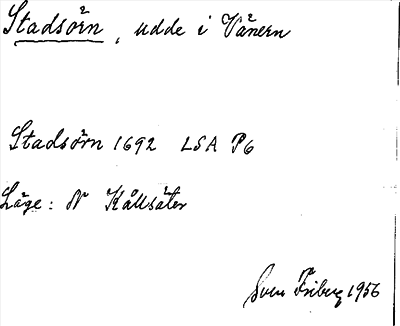 Stadsörn, udde i Vänern
Stadsörn 1692 LSA P6
Läge: N Kållsäter
Sven Friberg 1956